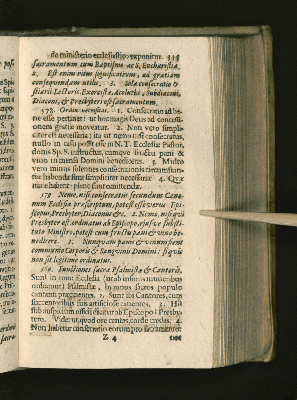 de ministerio ecclesiastico exponitur. 335
sacramentum cum Baptismo ac S. Eucharistia,
2. Est enim ritus significativus, ad gratiam
consequendam utilis. 3. Sola consecratio O-
stiarii Lectoris Exorcistæ, Acoluthi, Subdiaconi,
Diaconi, & Presbyteri est sacramentum.
378. Ordini necessitas. 1. Consecratio ad be-
ne esse pertinet: ut huic magis Deus ad concessi-
onem gratiæ moveatur. 2. Non vero simpli-
citer est necessaria: ita ut nemo nisi consecratus,
nullo in casu possit esse in N. T. Ecclesiæ Pastor,
donis Sp. S. instructus, cumque fructu pani &
vino in mensa Domini benedicere. 3. Multo
vero minus solennes consecrationis circumstan-
tiæ habendæ sunt simpliciter necessariæ 4. Quæ
nævæ habent: plane sunt omittendæ.
379 Nemo, nisi consecratus secundum Canu-
num Ecclesiæ præscriptum, potest esse verus Epi-
scopus, Presbyter, Diaconus &c. 2. Nemo, nisi quis
Presbyter est ordinatus ab Episcopo, ejusve substi-
tuto Ministro, potest cum fructu pani & vino be-
nedicere. 3. Nunquam panis & vinum sient
communio Corporis & Sanguinis Domini: si quis
non sit legitime ordinatus.
380. Functiones sacræ Psalmistæ & Cantoris.
Sunt in omni Ecclesia (ut ab infimis muneribus
ordiamur) Psalmistæ, hymnos sacros populo
cantanti præeuntes. 2. Sunt ibi Cantores, cum
succentoribus suis artificiose canentes. 3. His
sub impositum officii dicitur ab Episcopo l Presby-
tero. Vide ut, quod ore cantas, corde credas. 4.
Non habetur consecratio eorum pro sacramento:
Z 4